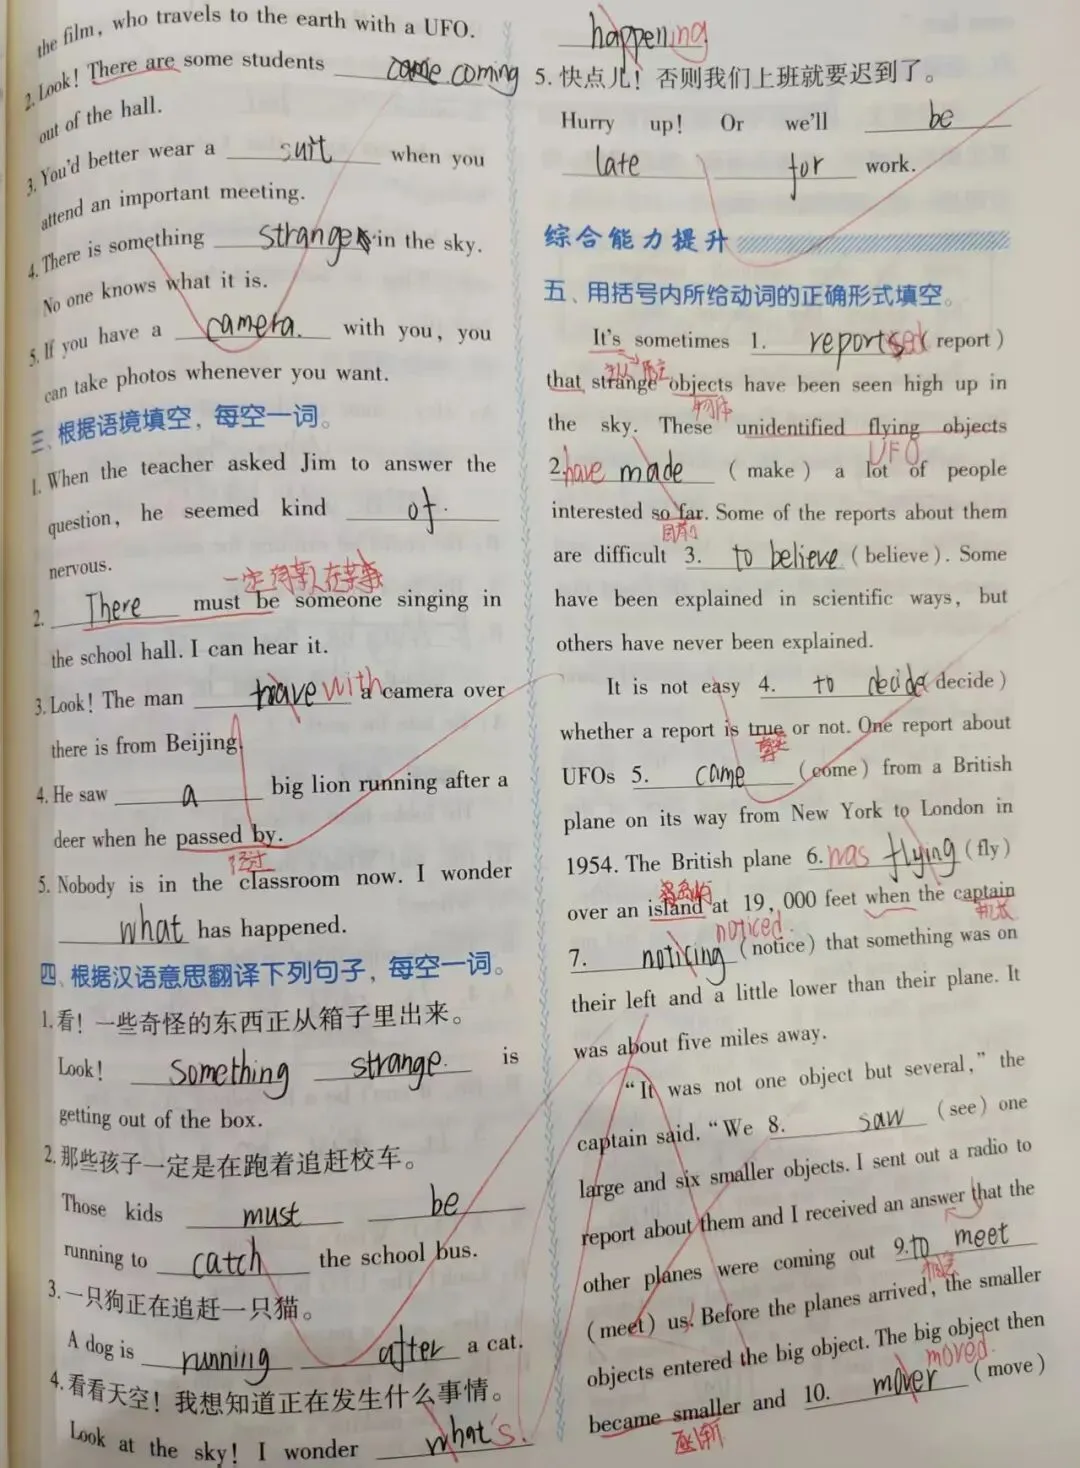 the film, who travels to the earth with a UFO.
2. Look! There are some students came coming
out of the hall.
3. You'd better wear a suit when you
attend an important meeting.
4. There is something strange in the sky.
No one knows what it is.
5. If you have a camera. with you, you
can take photos whenever you want.
三、根据语境填空，每空一词。
1. When the teacher asked Jim to answer the
question, he seemed kind of.
nervous.
一定有某人在某事
2. There must be someone singing in
the school hall. I can hear it.
3. Look! The man have with a camera over
there is from Beijing.
4. He saw a big lion running after a
deer when he passed by.
经过
5. Nobody is in the classroom now. I wonder
what has happened.
四、根据汉语意思翻译下列句子，每空一词。
1. 看！一些奇怪的东西正从箱子里出来。
Look! Something strange. is
getting out of the box.
2. 那些孩子一定是在跑着追赶校车。
Those kids must be
running to catch the school bus.
3. 一只狗正在追赶一只猫。
A dog is running after a cat.
4. 看看天空！我想知道正在发生什么事情。
Look at the sky! I wonder what's
happening
5. 快点儿！否则我们上班就要迟到了。
Hurry up! Or we'll be
late for work.
综合能力提升
五、用括号内所给动词的正确形式填空。
It's sometimes 1. reported (report)
that strange objects have been seen high up in
物体
the sky. These unidentified flying objects
UFO
2. have made (make) a lot of people
interested so far. Some of the reports about them
目前
are difficult 3. to believe (believe). Some
have been explained in scientific ways, but
others have never been explained.
It is not easy 4. to decide (decide)
whether a report is true or not. One report about
真实
UFOs 5. came (come) from a British
plane on its way from New York to London in
1954. The British plane 6. was flying (fly)
over an island at 19,000 feet when the captain
机长
noticed.
7. noticing (notice) that something was on
their left and a little lower than their plane. It
was about five miles away.
"It was not one object but several," the
captain said. "We 8. saw (see) one
large and six smaller objects. I sent out a radio to
report about them and I received an answer that the
other planes were coming out 9. to meet
(meet) us. Before the planes arrived, the smaller
objects entered the big object. The big object then
moved.
became smaller and 10. mover (move)
逐渐